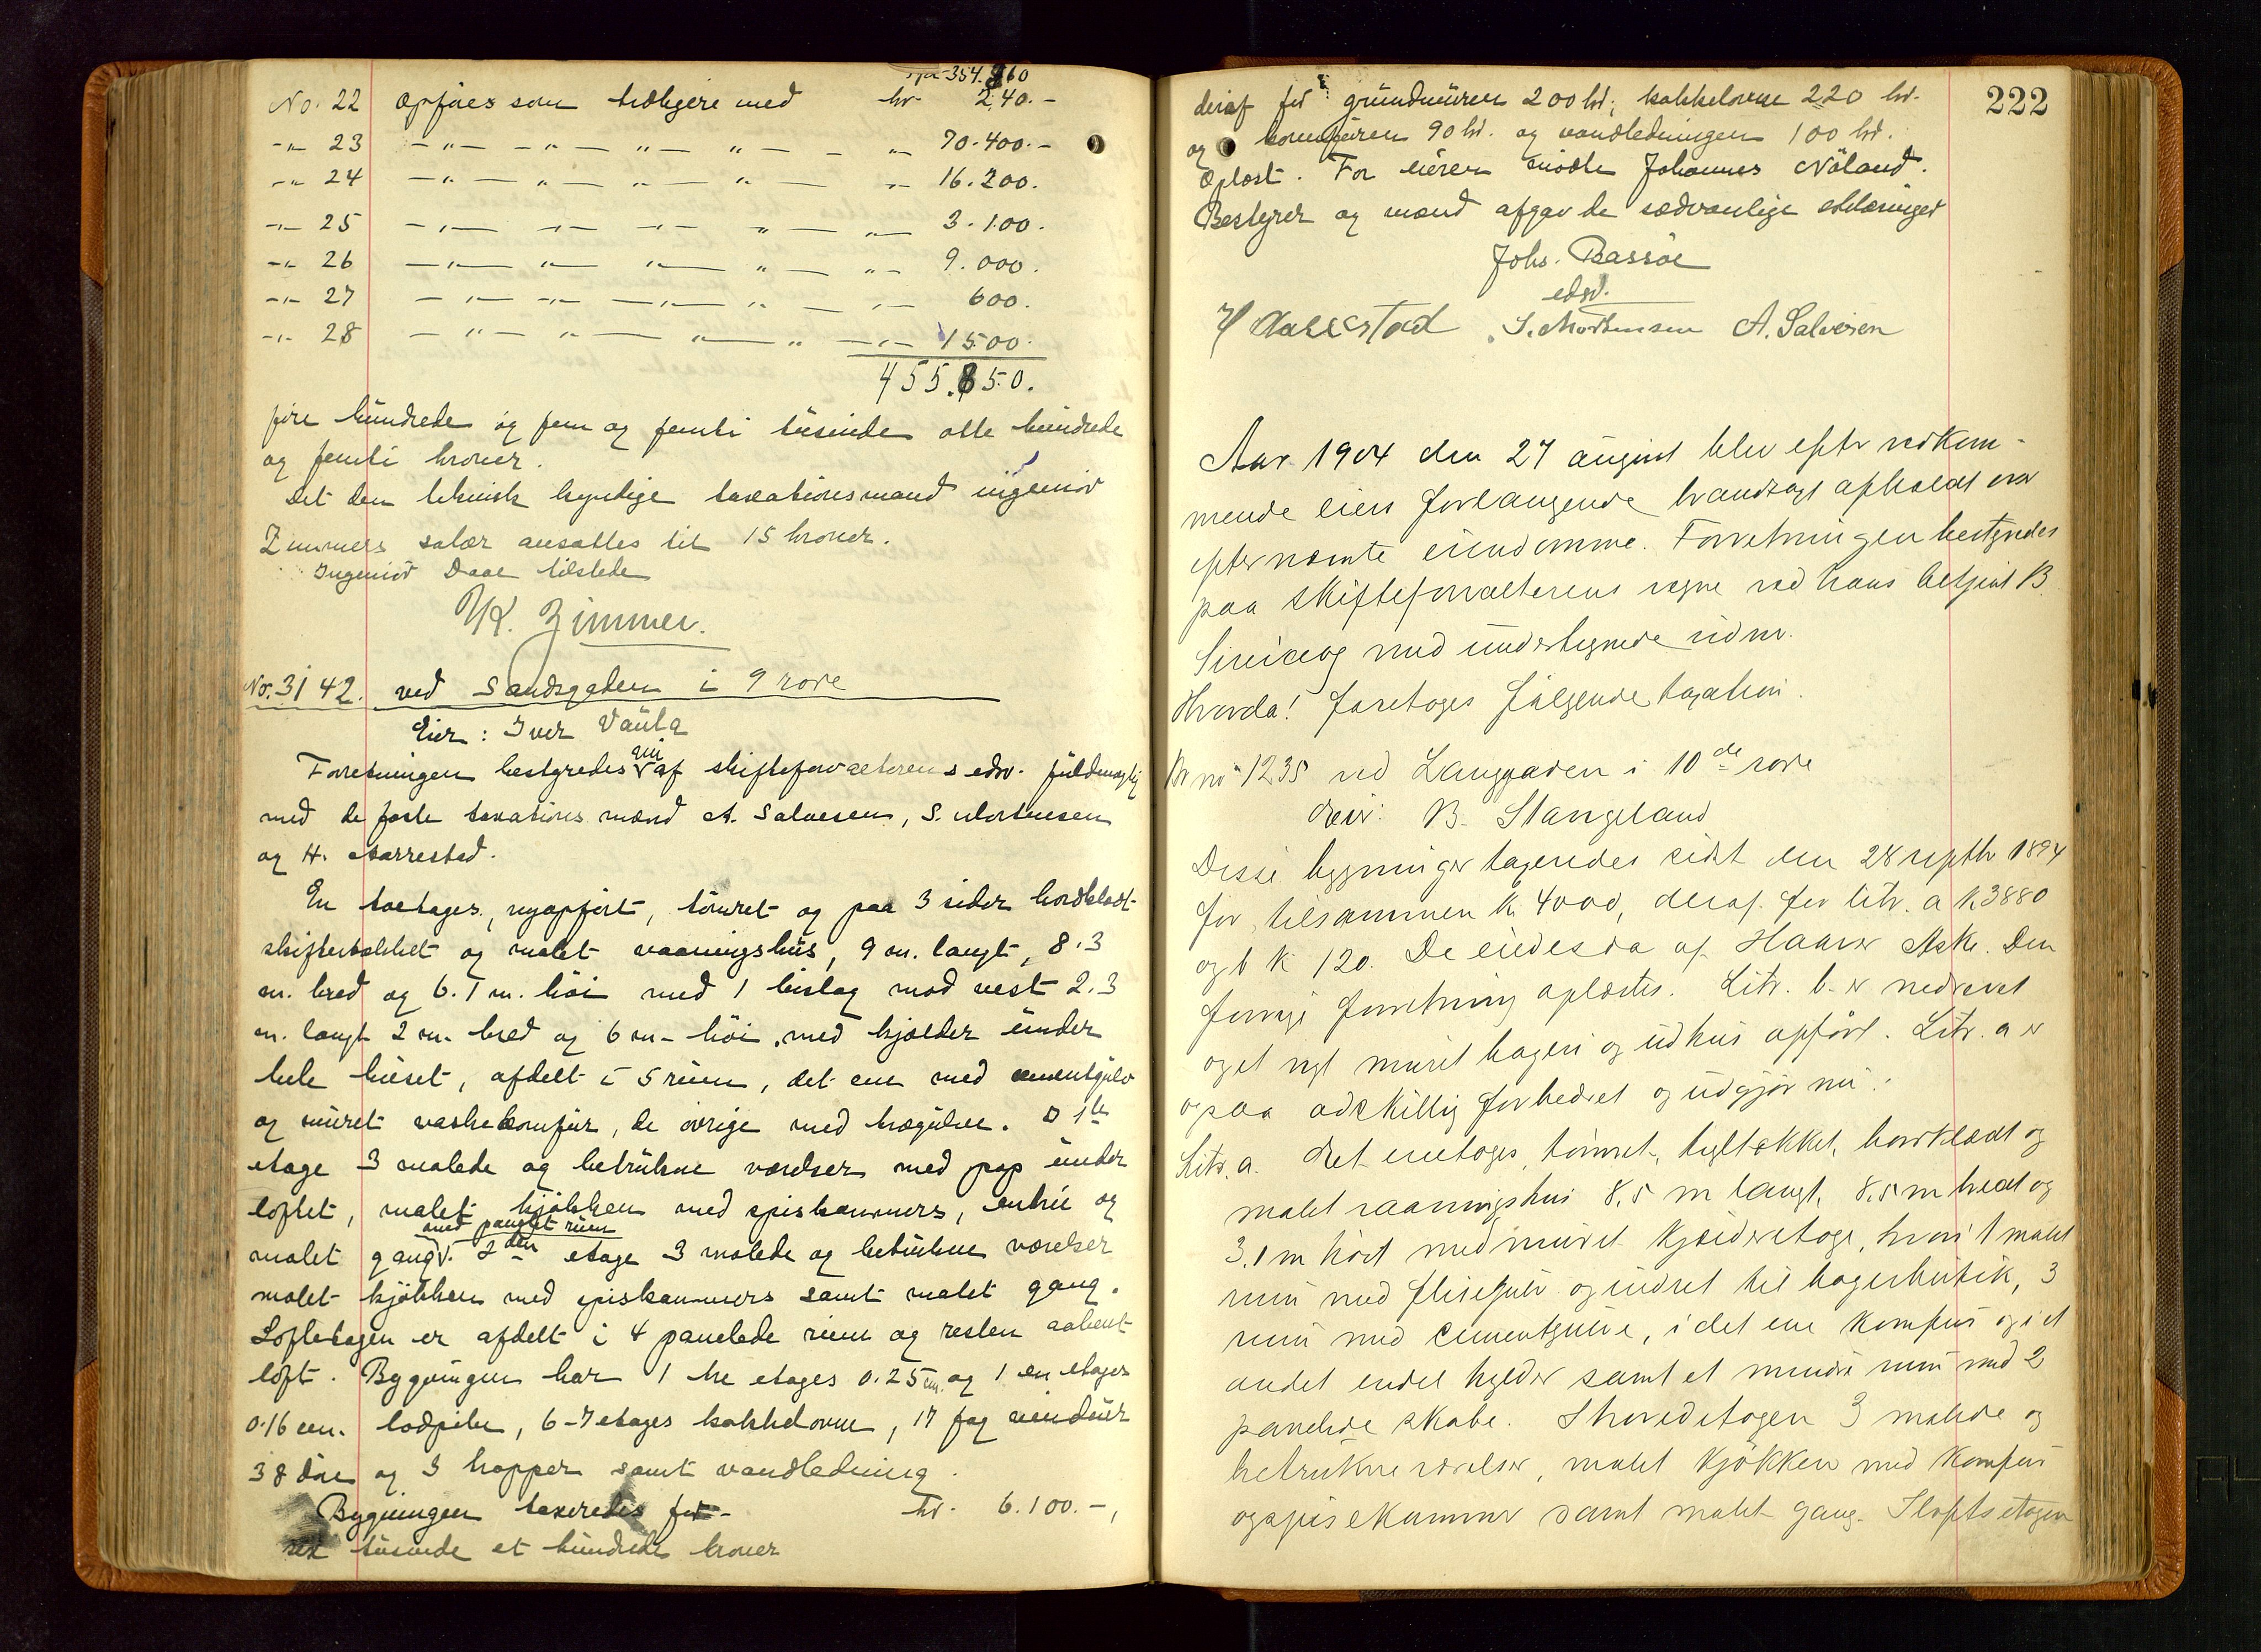 354.760
No. 22 opføres som tidligere med kr. 2,40.-
-"- 23 -"- -"- -"- "- - "- 70.400.-
-"- 24 -"- "- -"- "- "- 16.200.
-"- 25 -"- -"- -"- "- "- 3.100.
-"- 26 -"- "- "- "- "- 9.000.
-"- 27 -"- -"- -"- "- "- 600.
-"- 28 -"- -"- "- "- -"- 1500.
455.850.
fire hundrede og fem og femti tusinde otte hundrede
og femti kroner.
Det den teknisk kyndige taxationsmand ingeniør
Zimmers salær ansattes til 15 kroner.
Ingeniør Daae tilstede
K. Zimmer.
No. 3142. ved Sandsgaden i 9 rode
Eier: Iver Vaula
Forretningen bestyredes af skifteforvalterens edsv. fuldmægtig
med de faste taxations mænd A. Salvesen, S. Mortensen
og H. Aarrestad.
En toetages, nyopført, tømret og paa 3 sider bordklædt
skifertækket og malet vaaningshus, 9 m. langt, 8.3
m. bred og 6.1 m. høi med 1 bislag mod vest 2.3
m. langt 2 m. bred og 6 m. høi, med kjælder under
hele huset, afdelt i 5 rum, det ene med cementgulv
og muret vaskekomfur, de øvrige med trægulve. I 1ste
etage 3 malede og betrukne værelser med pap under
loftet, malet kjøkken med spiskammers, entré og
med panelt rum
malet gang. 2den etage 3 malede og betrukne værelser
malet kjøkken med spiskammers samt malet gang.
Loftetagen er afdelt i 4 panelede rum og resten aabent
loft. Bygningen har 1 tre etages 0.25 cm. og 1 en etages
0.16 cm. lodpibe, 6-7 etages kakkelovne, 17 fag vinduer
38 døre og 3 trapper samt vandledning.
Bygningen taxeredes for- kr. 6.100.-,
sex tusinde et hundrede kroner
222
deraf for grundmuren 200 kr., kakkelovne 220 kr.
og komfuren 90 kr. og vandledningen 100 kr.
Oplæst. For eieren mødte Johannes Nöland.
Bestyrer og mænd afgav de sædvanlige erklæringer
Johs. Bassøe
edsv.
H Aarrestad S. Mortensen A. Salvesen
Aar 1904 den 27 august blev efter vedkom-
mende eiers forlangende brandtagt afholdt over
efternævnte eiendomme. Forretningen bestyredes
paa skifteforvalterens vegne ved hans betjent B.
med undertegnede vidner.
Hvorda! foretoges følgende taxation.
Br no 1235 ved Langgaden i 10de rode
Eier: B. Stangeland
Disse bygninger taxeredes sidst den 28 septbr 1894
for tilsammen k. 4000, deraf for litr. a k. 3880
og b k 120. De eiedes da af Haaver Aske. Den
forrige forretning oplæstes. Litr. b. er nedrevet
og et nyt muret bageri og udhus opført. Litr. a er
ogsaa adskillig forbedret og udgjør nu:
Litr. a. Et enetages, tømret, tegltækket, bordklædt og
malet vaaningshus 8,5 m langt, 8,5 m bredt og
3,1 m høit med muret kjælderetage, hvori 1 malet
rum med flisegulv og indret til bagerbutik, 3
rum med cementgulve, i det ene komfur og i et
andet endel hylder samt et mindre rum med 2
panelede skabe. I hovedetagen 3 malede og
betrukne værelser, malet kjøkken med komfur
og spisekammer samt malet gang. I loftsetagen